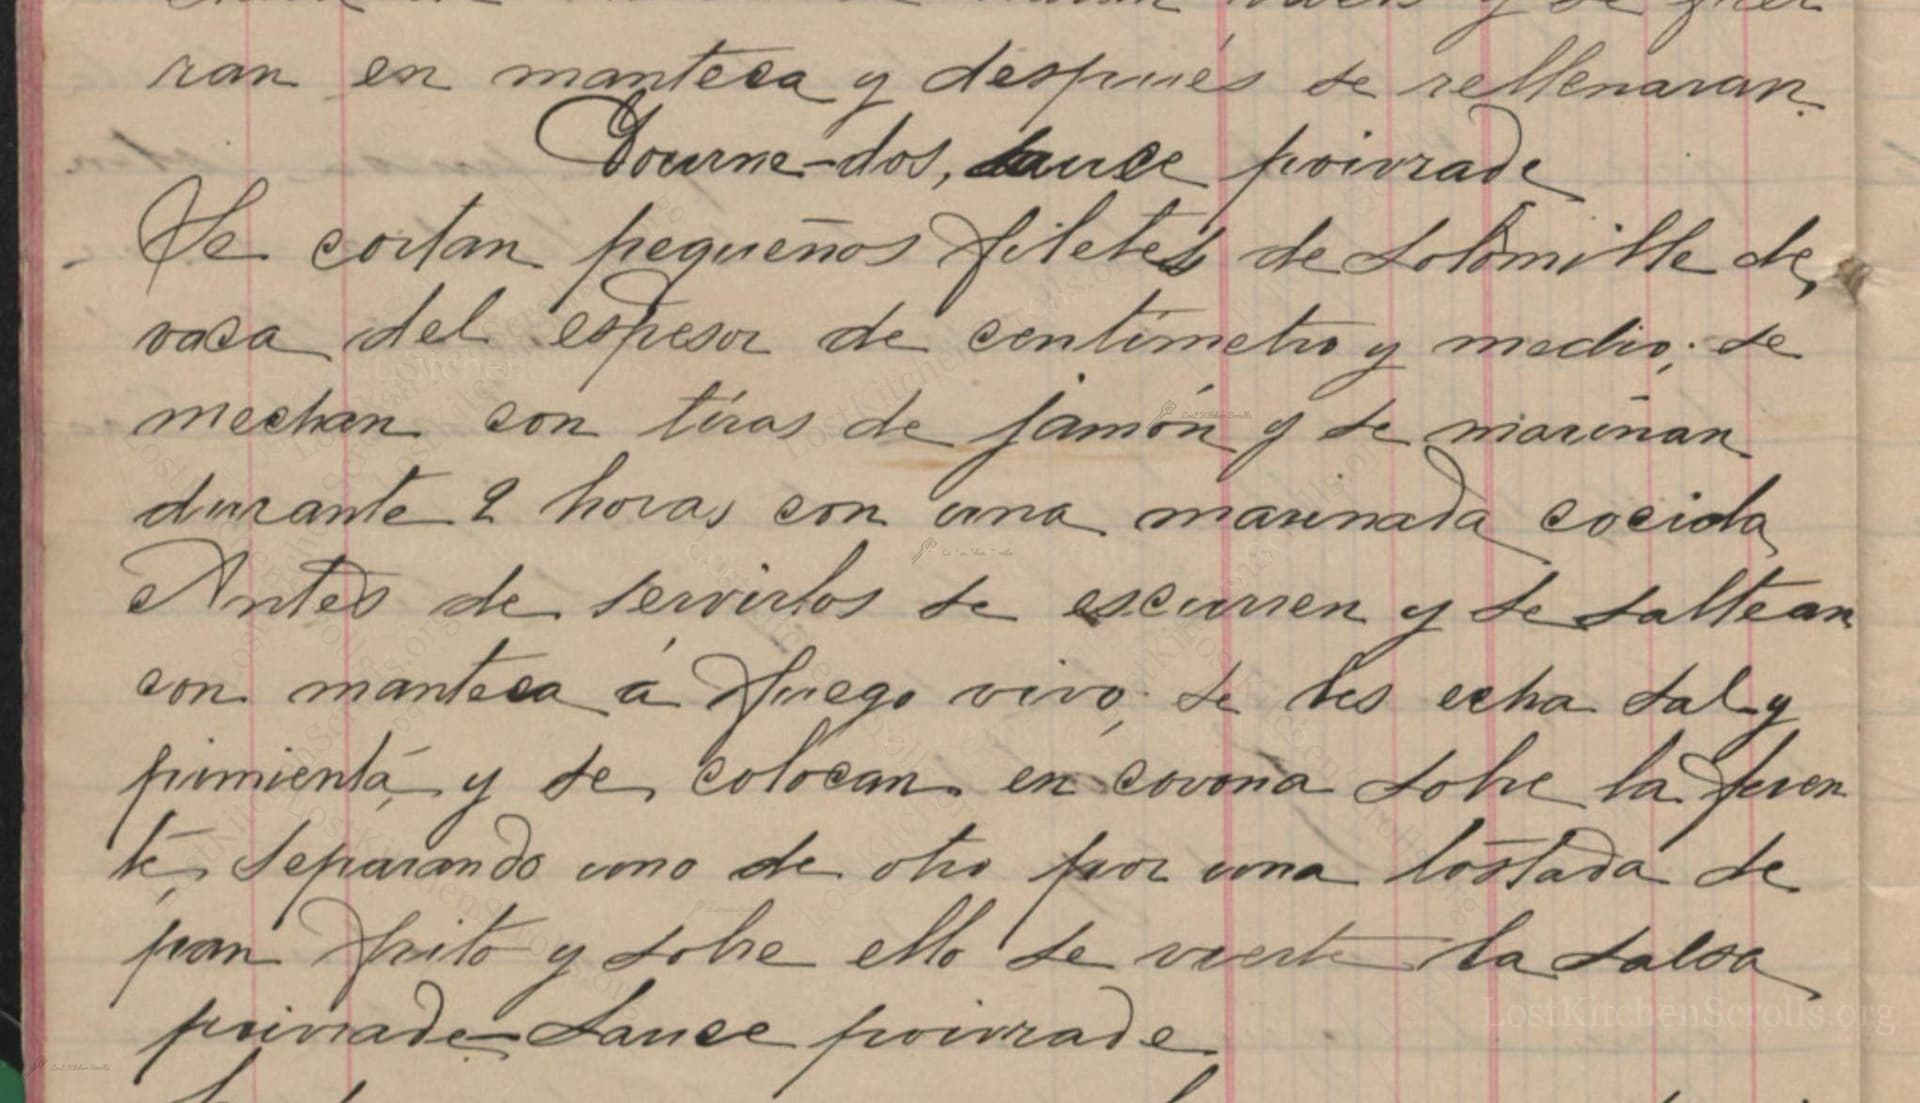 ran en manteca y después se rellenaran.
Tourne-dos, sauce poivrade
Se cortan pequeños filetes de solomille de
vaca del espesor de centímetro y medio; se
mechan con tiras de jamón y se marinan
durante 2 horas con una marinada cocida
Antes de servirlos se escurren y se saltean
con manteca á fuego vivo; se les echa sal y
pimienta, y se colocan en corona sobre la fuen
te, separando uno de otro por una tostada de
pan frito y sobre ello se vierte la salsa
poivrade - Sauce poivrade
LostKitchenScrolls.org